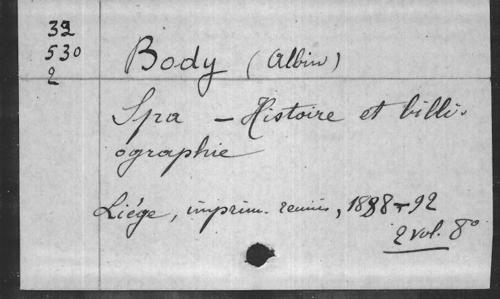 32
530
2
Body (Albin)
Spa - Histoire et billi-
ographie
Liége, imprim. reunis, 1888-92
2 vol. 8°